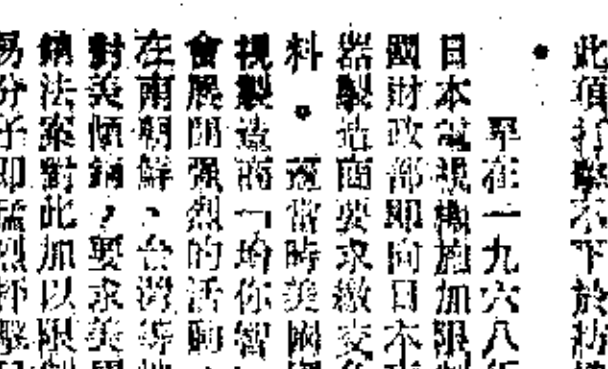 此項打擊不下於紡
。
早在一九六八年
日本電視機施加限
國財政部即向日本
器製造商要求繳交
料。當時美國
視製造商
會展開强烈的活動
在南朝鮮、台灣等
對美傾銷，要求美
銷法案對此加以限
易分子即猛烈抨擊